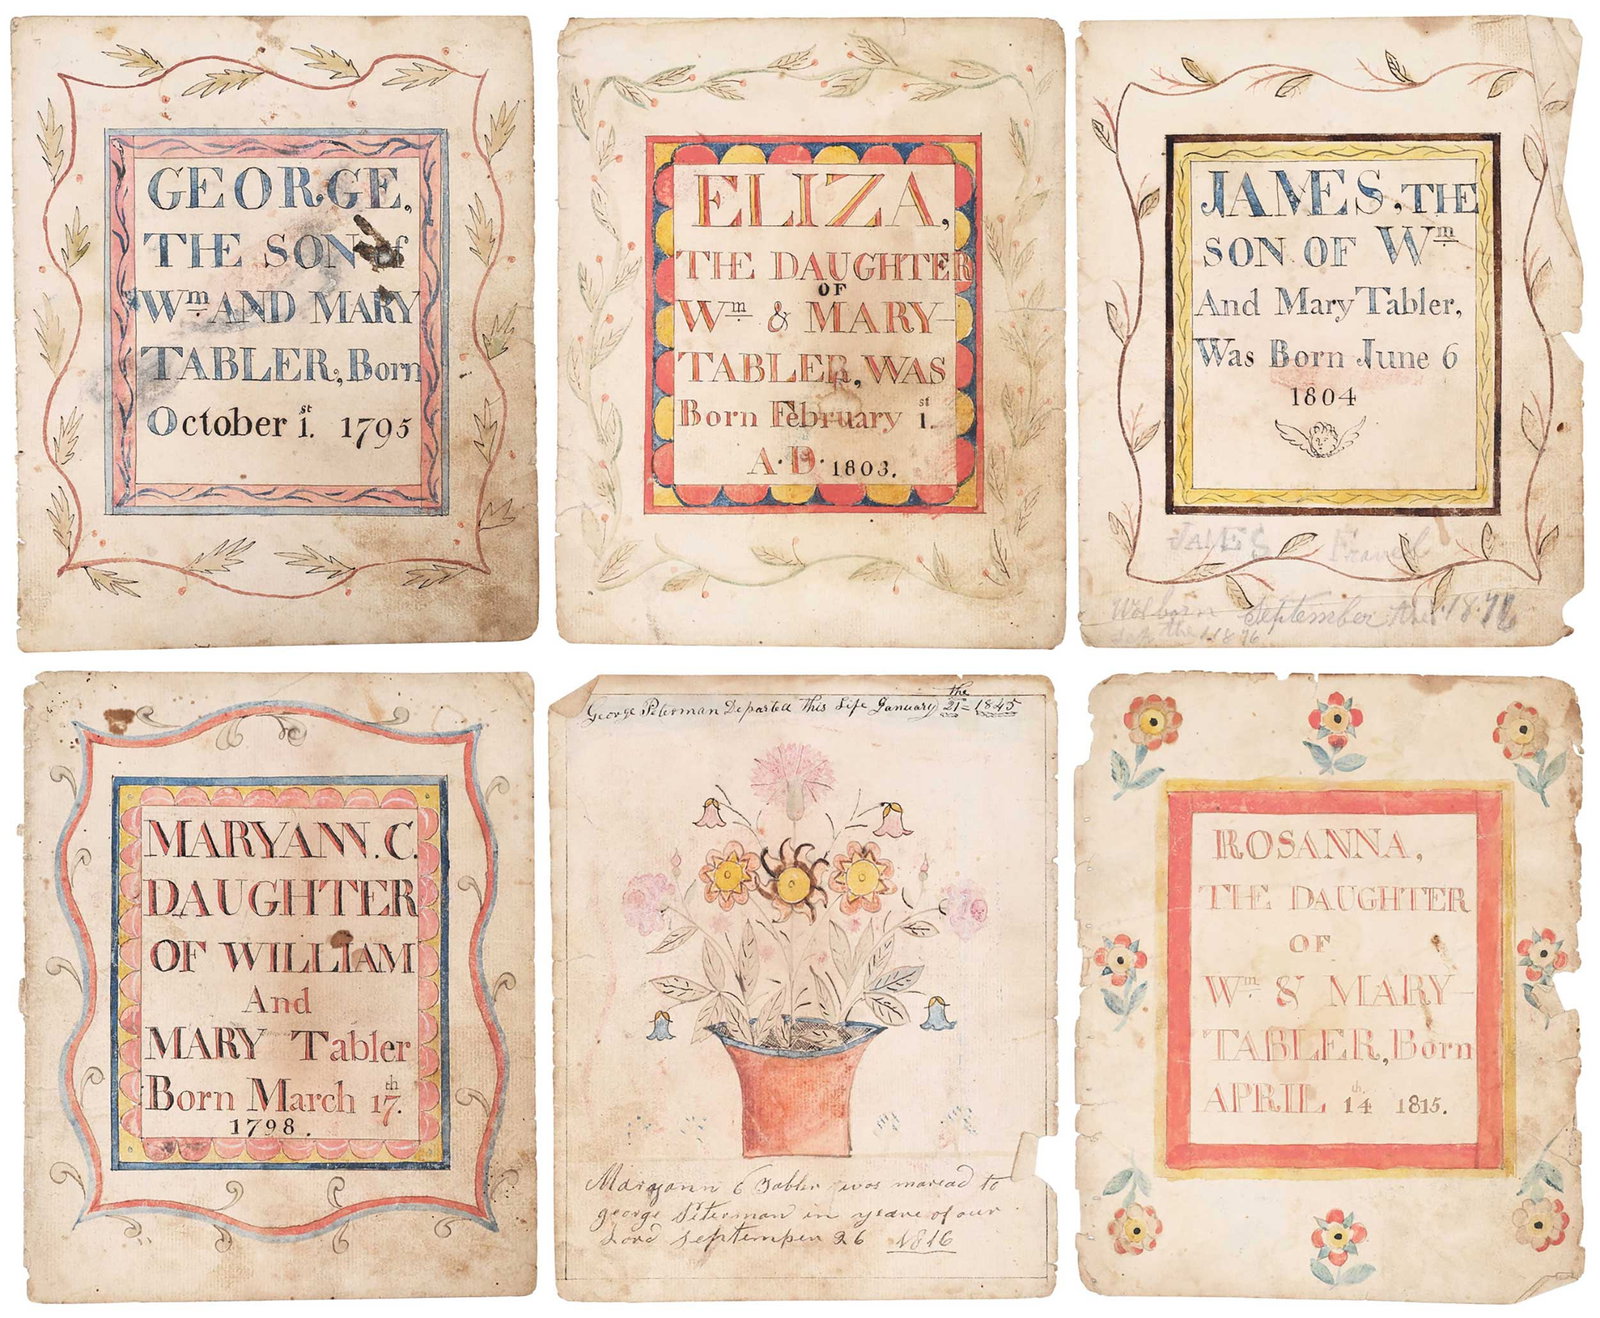 GEORGE,
THE SON of
Wm AND MARY
TABLER, Born
October 1st. 1795
ELIZA,
THE DAUGHTER
OF
Wm & MARY
TABLER, WAS
Born February 1st.
A. D. 1803.
JAMES, THE
SON OF Wm
And Mary Tabler,
Was Born June 6
1804
JAMES
September the 1876
the 1876
MARYANN. C.
DAUGHTER
OF WILLIAM
And
MARY Tabler
Born March 17th.
1798.
George Piterman Departed This Life January the 21 = 1845
Maryann C Tabler was maread to
george Piterman in yeare of our
Lord September 26 1816
ROSANNA,
THE DAUGHTER
OF
Wm & MARY
TABLER, Born
APRIL 14th, 1815.